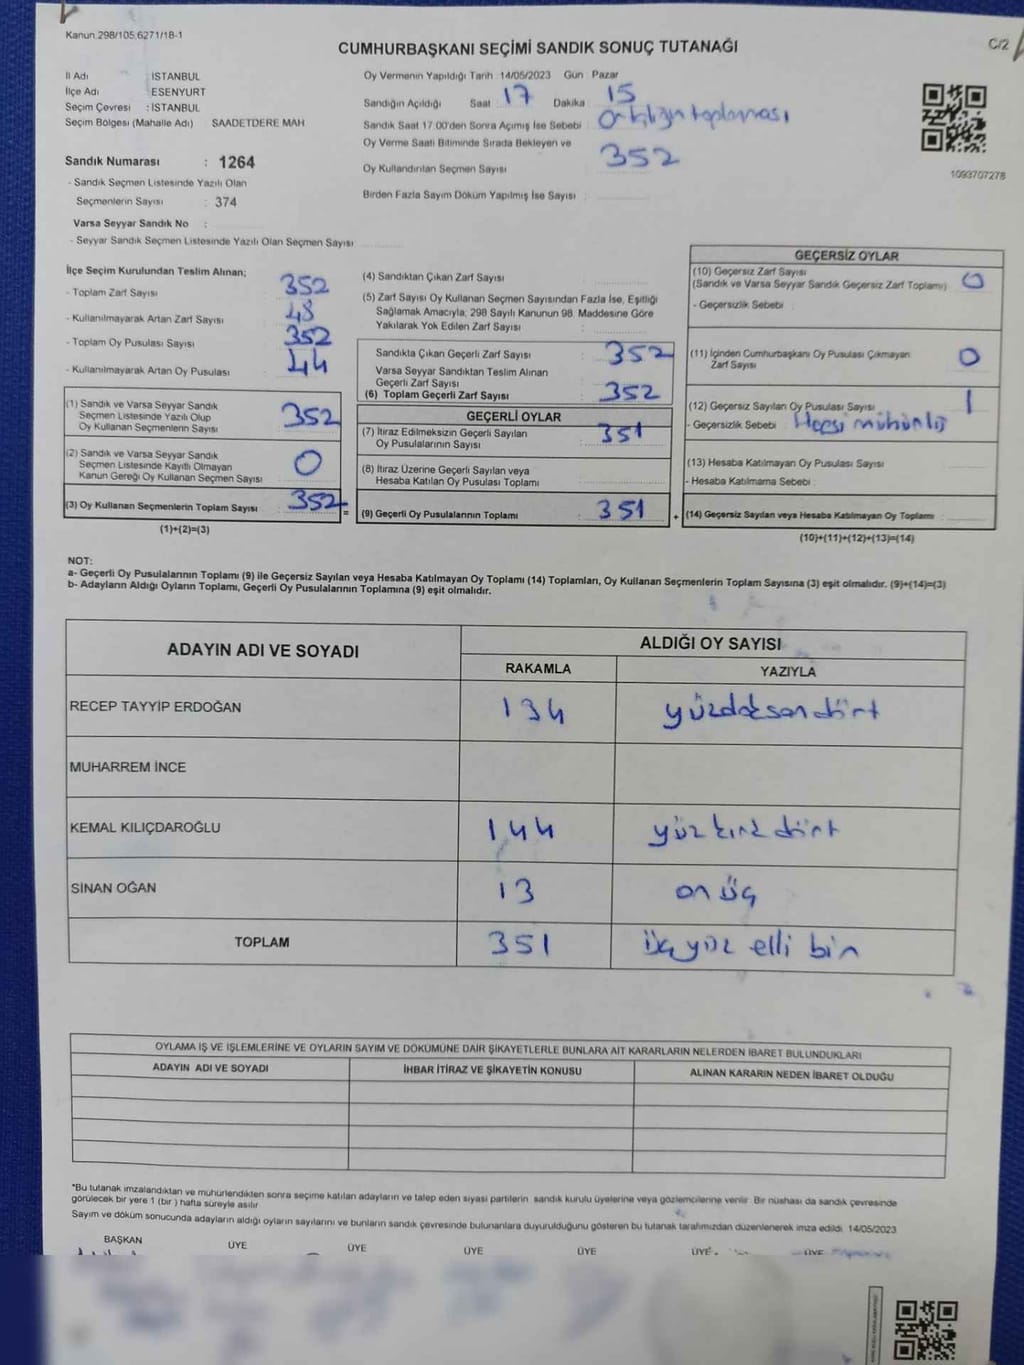 Kanun 298/105.6271/18-1
CUMHURBAŞKANI SEÇİMİ SANDIK SONUÇ TUTANAĞI
C/2
İl Adı : İSTANBUL
İlçe Adı : ESENYURT
Seçim Çevresi : İSTANBUL
Seçim Bölgesi (Mahalle Adı) SAADETDERE MAH
Sandık Numarası : 1264
- Sandık Seçmen Listesinde Yazılı Olan
Seçmenlerin Sayısı : 374
Varsa Seyyar Sandık No :
- Seyyar Sandık Seçmen Listesinde Yazılı Olan Seçmen Sayısı
Oy Vermenin Yapıldığı Tarih :14/05/2023 Gün : Pazar
Sandığın Açıldığı Saat 17 Dakika 15
Sandık Saat 17.00'den Sonra Açımış İse Sebebi : toplanması
Oy Verme Saati Bitiminde Sırada Bekleyen ve
Oy Kullandırılan Seçmen Sayısı : 352
Birden Fazla Sayım Döküm Yapılmış İse Sayısı :
1093707278
İlçe Seçim Kurulundan Teslim Alınan;
- Toplam Zarf Sayısı : 352
- Kullanılmayarak Artan Zarf Sayısı : 48
- Toplam Oy Pusulası Sayısı : 352
- Kullanılmayarak Artan Oy Pusulası : 44
(1) Sandık ve Varsa Seyyar Sandık
Seçmen Listesinde Yazılı Olup
Oy Kullanan Seçmenlerin Sayısı : 352
(2) Sandık ve Varsa Seyyar Sandık
Seçmen Listesinde Kayıtlı Olmayan
Kanun Gereği Oy Kullanan Seçmen Sayısı : 0
(3) Oy Kullanan Seçmenlerin Toplam Sayısı : 352 =
(1)+(2)=(3)
(4) Sandıktan Çıkan Zarf Sayısı :
(5) Zarf Sayısı Oy Kullanan Seçmen Sayısından Fazla İse, Eşitliği
Sağlamak Amacıyla, 298 Sayılı Kanunun 98. Maddesine Göre
Yakılarak Yok Edilen Zarf Sayısı :
Sandıkta Çıkan Geçerli Zarf Sayısı : 352
Varsa Seyyar Sandıktan Teslim Alınan
Geçerli Zarf Sayısı :
(6) Toplam Geçerli Zarf Sayısı : 352
GEÇERLİ OYLAR
(7) İtiraz Edilmeksizin Geçerli Sayılan
Oy Pusulalarının Sayısı : 351
(8) İtiraz Üzerine Geçerli Sayılan veya
Hesaba Katılan Oy Pusulası Toplamı :
(9) Geçerli Oy Pusulalarının Toplamı : 351 +
GEÇERSİZ OYLAR
(10) Geçersiz Zarf Sayısı
(Sandık ve Varsa Seyyar Sandık Geçersiz Zarf Toplamı) : 0
- Geçersizlik Sebebi :
(11) İçinden Cumhurbaşkanı Oy Pusulası Çıkmayan
Zarf Sayısı : 0
(12) Geçersiz Sayılan Oy Pusulası Sayısı : 1
- Geçersizlik Sebebi : Hepsi mühünlü
(13) Hesaba Katılmayan Oy Pusulası Sayısı :
- Hesaba Katılmama Sebebi :
(14) Geçersiz Sayılan veya Hesaba Katılmayan Oy Toplamı :
(10)+(11)+(12)+(13)=(14)
NOT:
a- Geçerli Oy Pusulalarının Toplamı (9) ile Geçersiz Sayılan veya Hesaba Katılmayan Oy Toplamı (14) Toplamları, Oy Kullanan Seçmenlerin Toplam Sayısına (3) eşit olmalıdır. (9)+(14)=(3)
b- Adayların Aldığı Oyların Toplamı, Geçerli Oy Pusulalarının Toplamına (9) eşit olmalıdır.
ADAYIN ADI VE SOYADI ALDIĞI OY SAYISI
RAKAMLA YAZIYLA
RECEP TAYYİP ERDOĞAN 134 yüzdoksandört
MUHARREM İNCE
KEMAL KILIÇDAROĞLU 144 yüz kırk dört
SİNAN OĞAN 13 on üç
TOPLAM 351 üçyüz elli bir
OYLAMA İŞ VE İŞLEMLERİNE VE OYLARIN SAYIM VE DÖKÜMÜNE DAİR ŞİKAYETLERLE BUNLARA AİT KARARLARIN NELERDEN İBARET BULUNDUKLARI
ADAYIN ADI VE SOYADI İHBAR İTİRAZ VE ŞİKAYETİN KONUSU ALINAN KARARIN NEDEN İBARET OLDUĞU
*Bu tutanak imzalandıktan ve mühürlendikten sonra seçime katılan adayların ve talep eden siyasi partilerin sandık kurulu üyelerine veya gözlemcilerine verilir. Bir nüshası da sandık çevresinde
görülecek bir yere 1 (bir ) hafta süreyle asılır
Sayım ve döküm sonucunda adayların aldığı oyların sayılarını ve bunların sandık çevresinde bulunanlara duyurulduğunu gösteren bu tutanak tarafımızdan düzenlenerek imza edildi. 14/05/2023
BAŞKAN ÜYE ÜYE ÜYE ÜYE ÜYE ÜYE